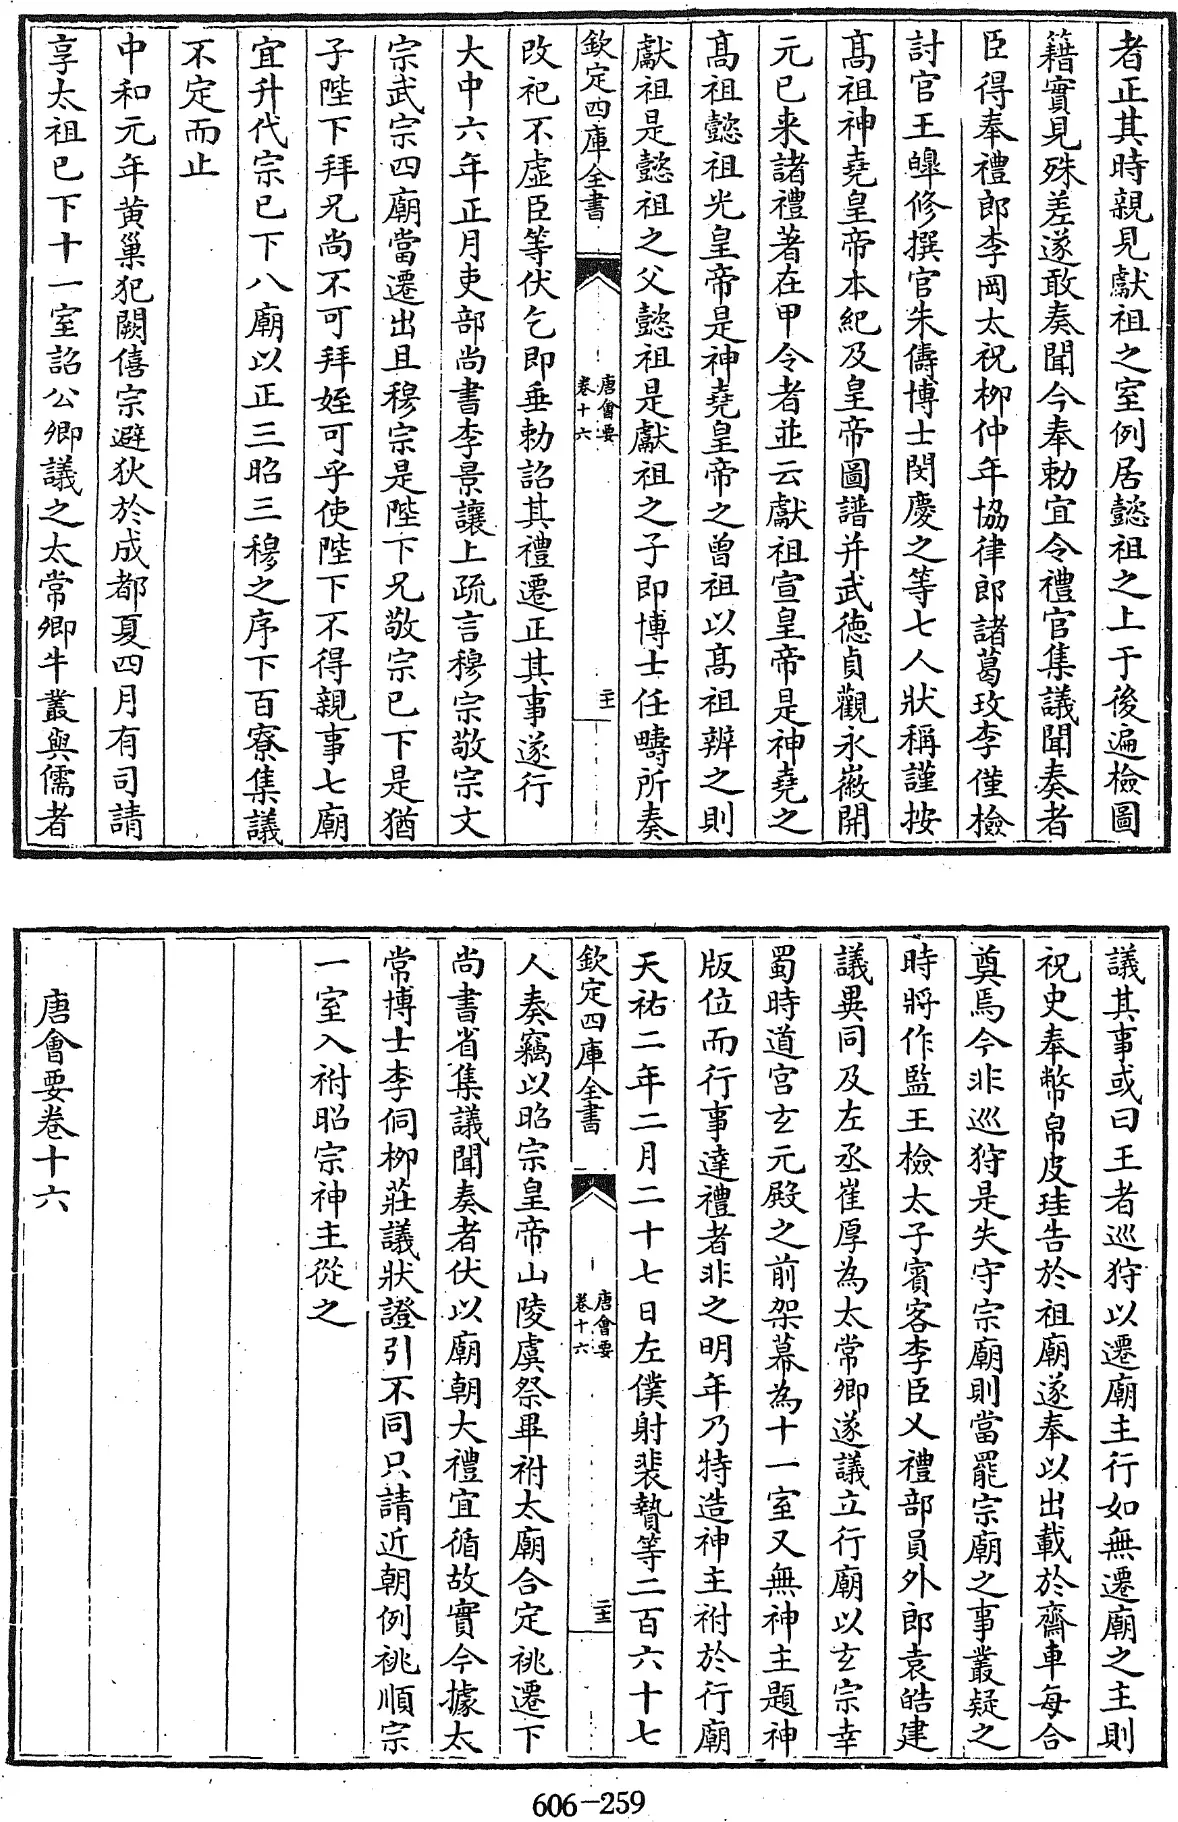 者正其時親見獻祖之室例居懿祖之上于後遍檢圖
籍實見殊差遂敢奏聞今奉勅宜令禮官集議聞奏者
臣得奉禮郎李岡太祝柳仲年協律郎諸葛玫李僅檢
討官王皡修撰官朱儔博士閔慶之等七人狀稱謹按
髙祖神堯皇帝本紀及皇帝圖譜并武徳貞觀永徽開
元已来諸禮著在甲令者並云獻祖宣皇帝是神堯之
髙祖懿祖光皇帝是神堯皇帝之曾祖以髙祖辨之則
獻祖是懿祖之父懿祖是獻祖之子即博士任疇所奏
欽定四庫全書
唐會要
卷十六
二十一
改祀不虛臣等伏乞即垂勅詔其禮遷正其事遂行
大中六年正月吏部尚書李景讓上疏言穆宗敬宗文
宗武宗四廟當遷出且穆宗是陛下兄敬宗已下是猶
子陛下拜兄尚不可拜姪可乎使陛下不得親事七廟
宜升代宗已下八廟以正三昭三穆之序下百寮集議
不定而止
中和元年黄巢犯闕僖宗避狄於成都夏四月有司請
享太祖已下十一室詔公卿議之太常卿牛叢與儒者
議其事或曰王者巡狩以遷廟主行如無遷廟之主則
祝史奉幣帛皮珪告於祖廟遂奉以出載於齋車每合
奠焉今非巡狩是失守宗廟則當罷宗廟之事叢疑之
時將作監王檢太子賓客李臣乂禮部員外郎袁皓建
議異同及左丞崔厚為太常卿遂議立行廟以玄宗幸
蜀時道宫玄元殿之前架幕為十一室又無神主題神
版位而行事達禮者非之明年乃特造神主祔於行廟
天祐二年二月二十七日左僕射裴贄等二百六十七
欽定四庫全書
唐會要
卷十六
二十二
人奏竊以昭宗皇帝山陵虞祭畢祔太廟合定祧遷下
尚書省集議聞奏者伏以廟朝大禮宜循故實今據太
常博士李侗柳莊議狀證引不同只請近朝例祧順宗
一室入祔昭宗神主從之
唐會要卷十六
606-259